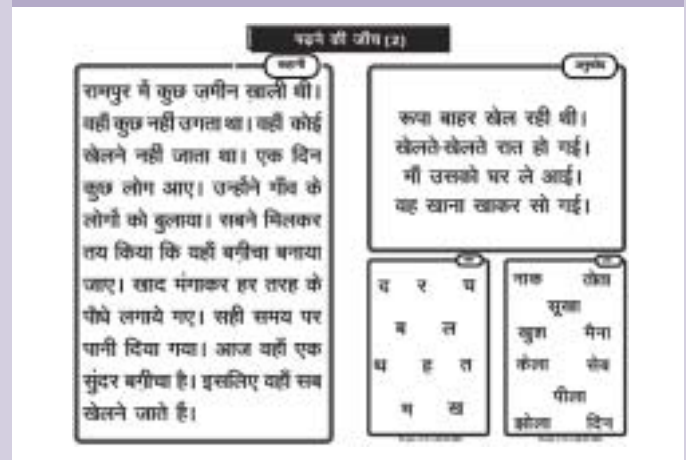 पढ़ने की जाँच (2)
कहानी
रामपुर में कुछ ज़मीन ख़ाली थी।
वहाँ कुछ नहीं उगता था। वहाँ कोई
खेलने नहीं जाता था। एक दिन
कुछ लोग आए। उन्होंने गाँव के
लोगों को बुलाया। सबने मिलकर
तय किया कि यहाँ बग़ीचा बनाया
जाए। खाद मंगाकर हर तरह के
पौधे लगाये गए। सही समय पर
पानी दिया गया। आज वहाँ एक
सुंदर बगीचा है। इसलिए वहाँ सब
खेलने जाते हैं।
अनुच्छेद
रूपा बाहर खेल रही थी।
खेलते-खेलते रात हो गई।
माँ उसको घर ले आई।
वह खाना खाकर सो गई।
द र प
ब ल
ह त
ख
नाक तोता
सूखा
खुश मैना
केला सेब
पीला
झोला दिन